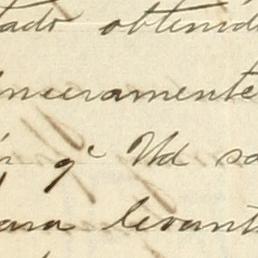 tado obtenid
inceramente
n q' Vd sa
ara levant